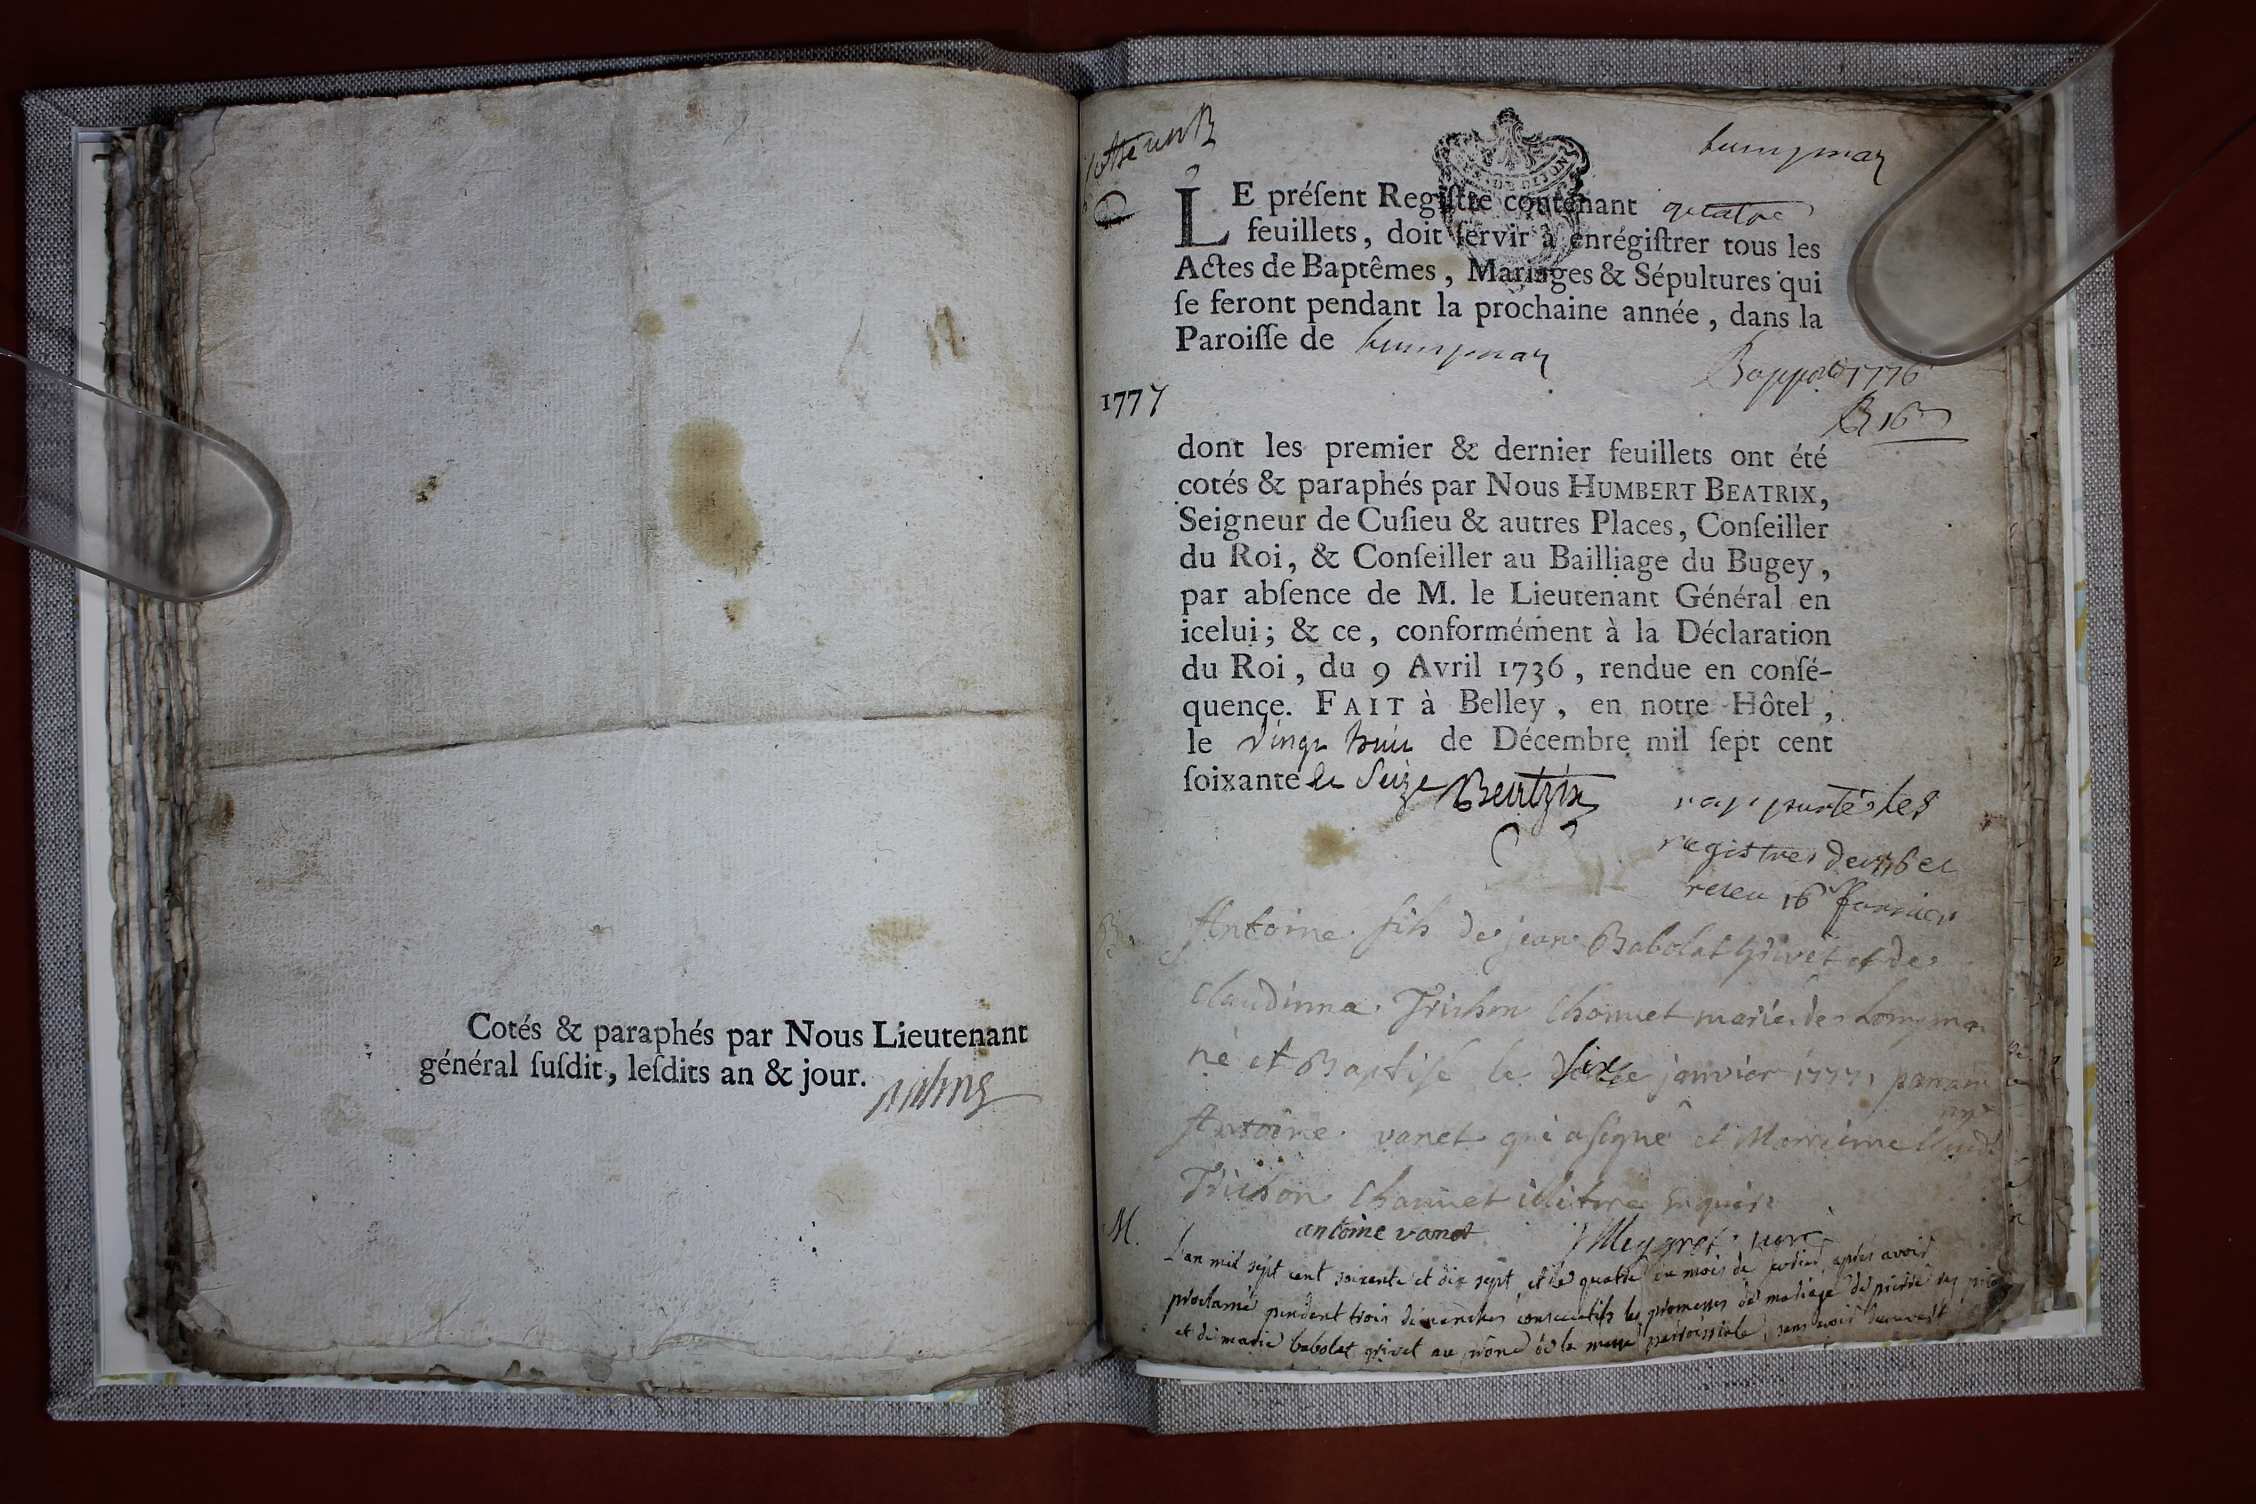 Cotés & paraphés par Nous Lieutenant
général ſuſdit, leſdits an & jour.
LE préſent Regiſtre contenant quatre
feuillets, doit ſervir à enrégiſtrer tous les
Actes de Baptêmes, Mariages & Sépultures qui
ſe feront pendant la prochaine année, dans la
Paroiſſe de
1777
dont les premier & dernier feuillets ont été
cotés & paraphés par Nous HUMBERT BEATRIX,
Seigneur de Cuſieu & autres Places, Conſeiller
du Roi, & Conſeiller au Bailliage du Bugey,
par abſence de M. le Lieutenant Général en
icelui; & ce, conformément à la Déclaration
du Roi, du 9 Avril 1736, rendue en conſé-
quence. FAIT à Belley, en notre Hôtel,
le vingt huit de Décembre mil ſept cent
ſoixante et seize
rapporté les
registres de 1776 et
Antoine fils de jean Babolat Grivet et de
Claudinne Trichon Chomet mariés de
né et Baptisé le six janvier 1777 parrain
Antoine vanet qui a signé et Marreine
Trichon Chaumet illitéré enquise
antoine vanet
M.
L'an mil sept cent soixente et dix sept, et le quatre du mois de après avoir
proclamé pendent trois dimenches consecutifs les promesses de mariage de pierre
et de marie babolat grivet au prône de la messe parroissiale, sans avoir